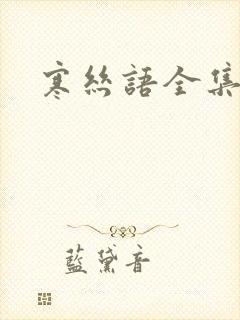 寒絲語全集
藍黛音